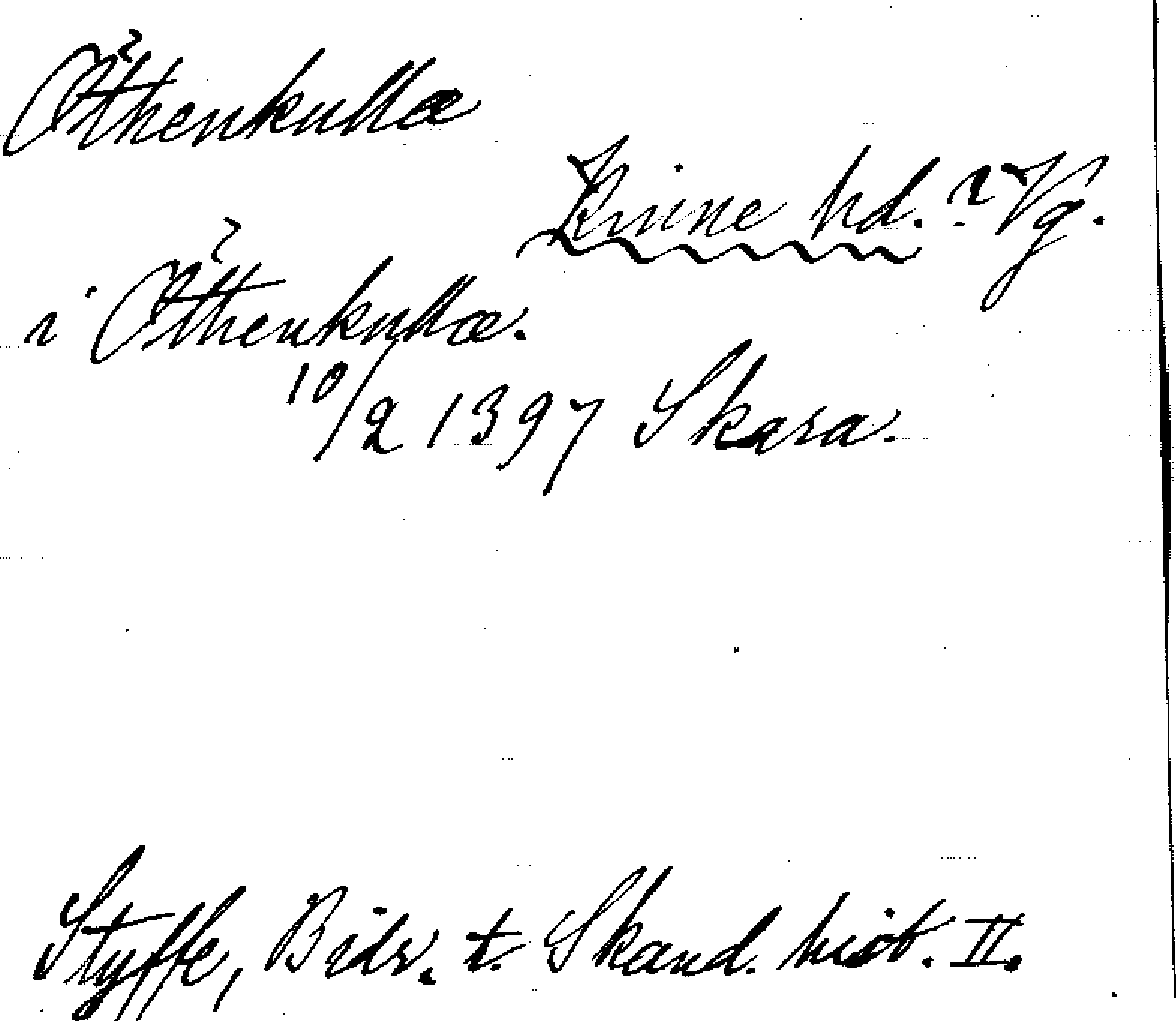 Öthenkullæ
Kinne hd. ? Vg.
i Öthenkullæ.
10/2 1397 Skara.
Styffe, Bidr. t. Skand. hist. II.